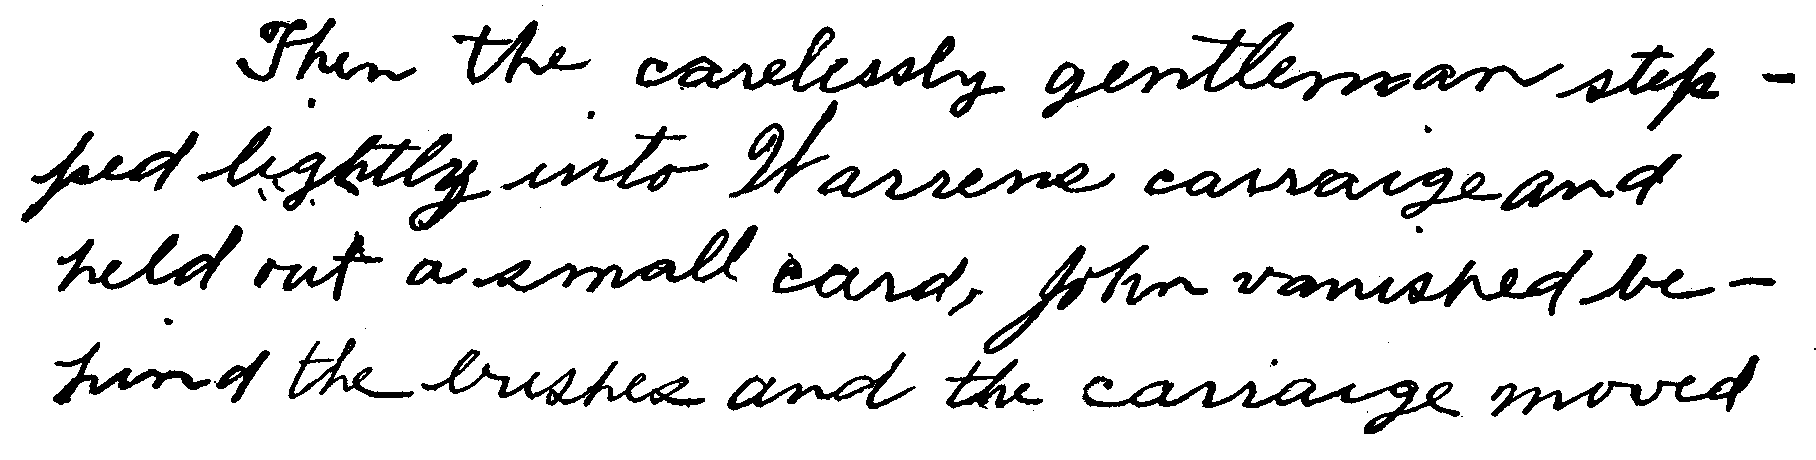 Then the carelessly gentleman step-
ped lightly into Warrene carraige and
held out a small card, John vanished be-
hind the brushes and the carraige moved